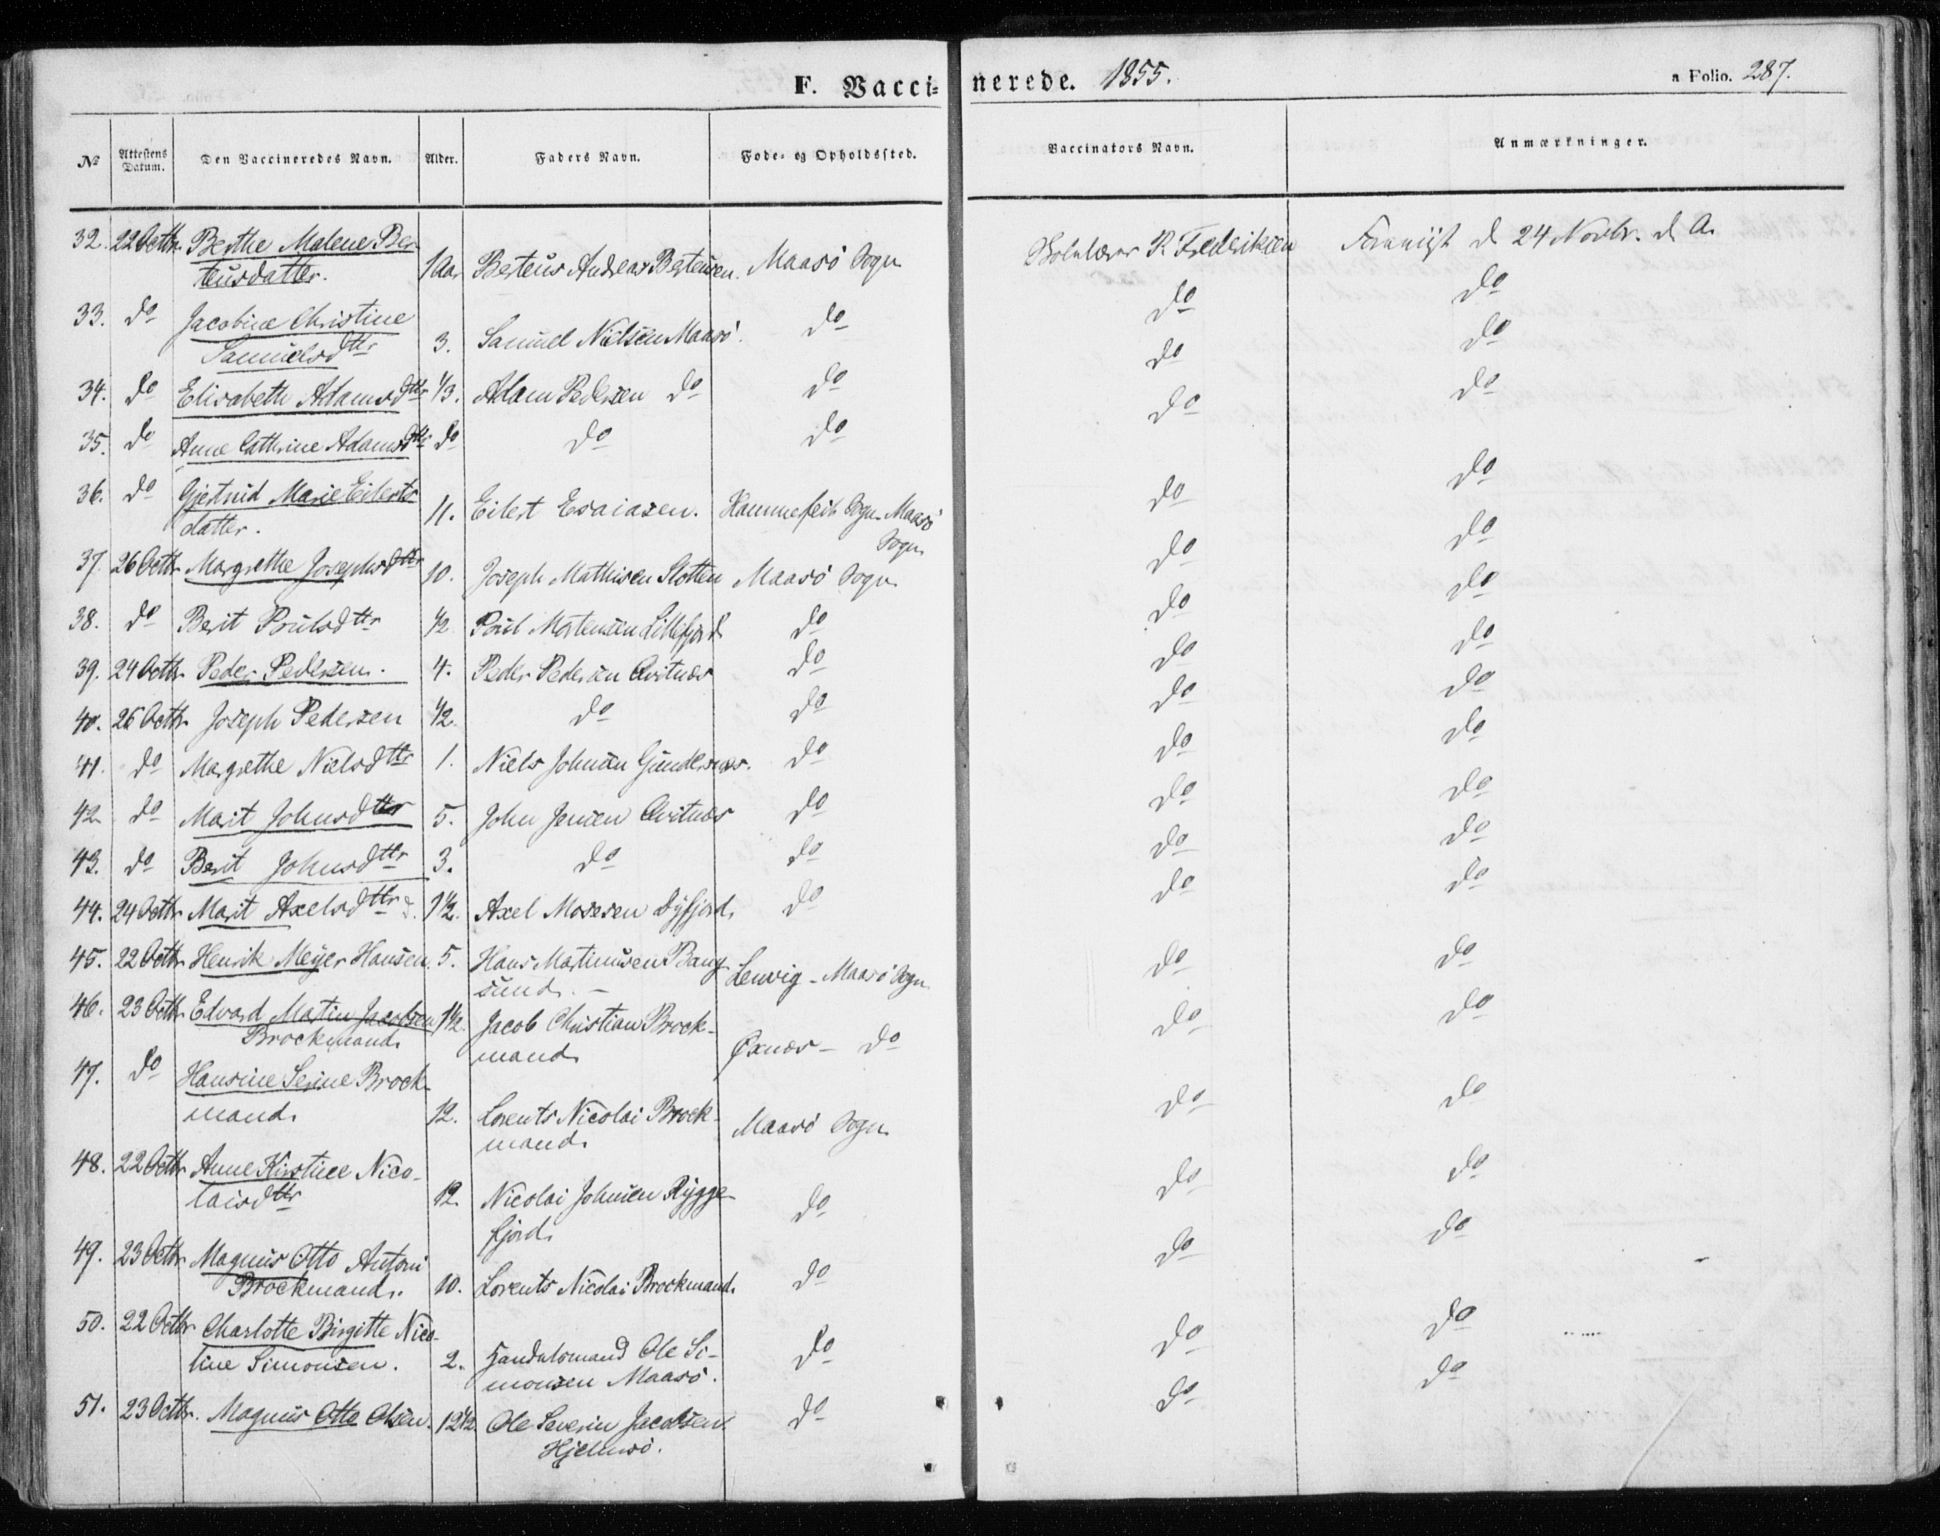 F. Vaccinerede. 1855. a Folio. 287.
№ Attestens Datum. Den Vaccineredes Navn. Alder. Faders Navn. Føde- og Opholdssted. Vaccinators Navn. Anmærkninger.
32. 22 Octbr. Berthe Malene Ber
teusdatter. 1 Aar Berteus Andreas Berteusen. Maasö Sogn Skolelærer P. Frederiksen d. 24 Novbr. d. A.
33. do Jacobine Christine
Samuelsdttr 3. Samuel Nielsen Maasö. do do do
34. do Elisabeth Adamsdttr 1/3. Adam Pedersen do do do do
35. do Anne Cathrine Adamsdttr do do do do do
36. do Gjertrud Marie Eilerts
datter. 11. Eilert Esaiasen. Hammerfest Sogn. Maasö
Sogn do do
37. 26 Octbr Margrethe Josephsdttr 10. Joseph Mathisen Slotten Maasö Sogn do do
38. do Berit Poulsdttr 1/2. Poul Mortensen Lillefjord do do do
39. 24 Octbr Peder Pedersen. 4. Peder Pedersen Qvitnæs do do do
40. 26 Octbr. Joseph Pedersen 1/2. do do do do
41. do Margrethe Nielsdttr 1. Niels Johnsen Gundersnæs. do do do
42 do Marit Johnsdttr 5. John Jensen Qvitnæs do do do
43. do Berit Johnsdttr 3. do do do do
44. 24 Octbr Marit Axelsdttr 1 1/2. Axel Mosesen Dyfjord. do do do
45. 22 Octbr Henrik Meyer Hansen. 5. Hans Martinusen Bang
sund. Lenvig - Maasö Sogn do do
46. 23 Octbr Edvard Martin Jacobsen
Brockmand. 1 1/2. Jacob Christian Brock-
mand. Øxnæs - do do do
47. do Hansine Serine Brock-
mand. 12. Lorents Nicolai Brock-
mand. Maasö Sogn do do
48. 22 Octbr Anne Kirstine Nico-
laisdttr 12. Nicolai Johnsen Rygge-
fjord. do do do
49. 23 Octbr Magnus Otto Antoni
Brockmand. 10. Lorents Nicolai Brockmand. do do do
50. 22 Octbr Charlotte Birgitte Nico-
line Simonsen. 2. Handelsmand Ole Si-
monsen Maasö. do do do
51. 23 Octbr. Magnus Otto Olsen. 12 1/2 Ole Severin Jacobsen
Hjelmsö. do do do